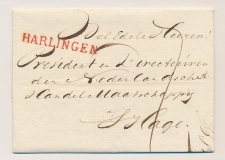 HARLINGEN
Wel Edele Heeren!
President en Directeuren
der Nederlandsche
Handel Maatschappy
S'Hage.